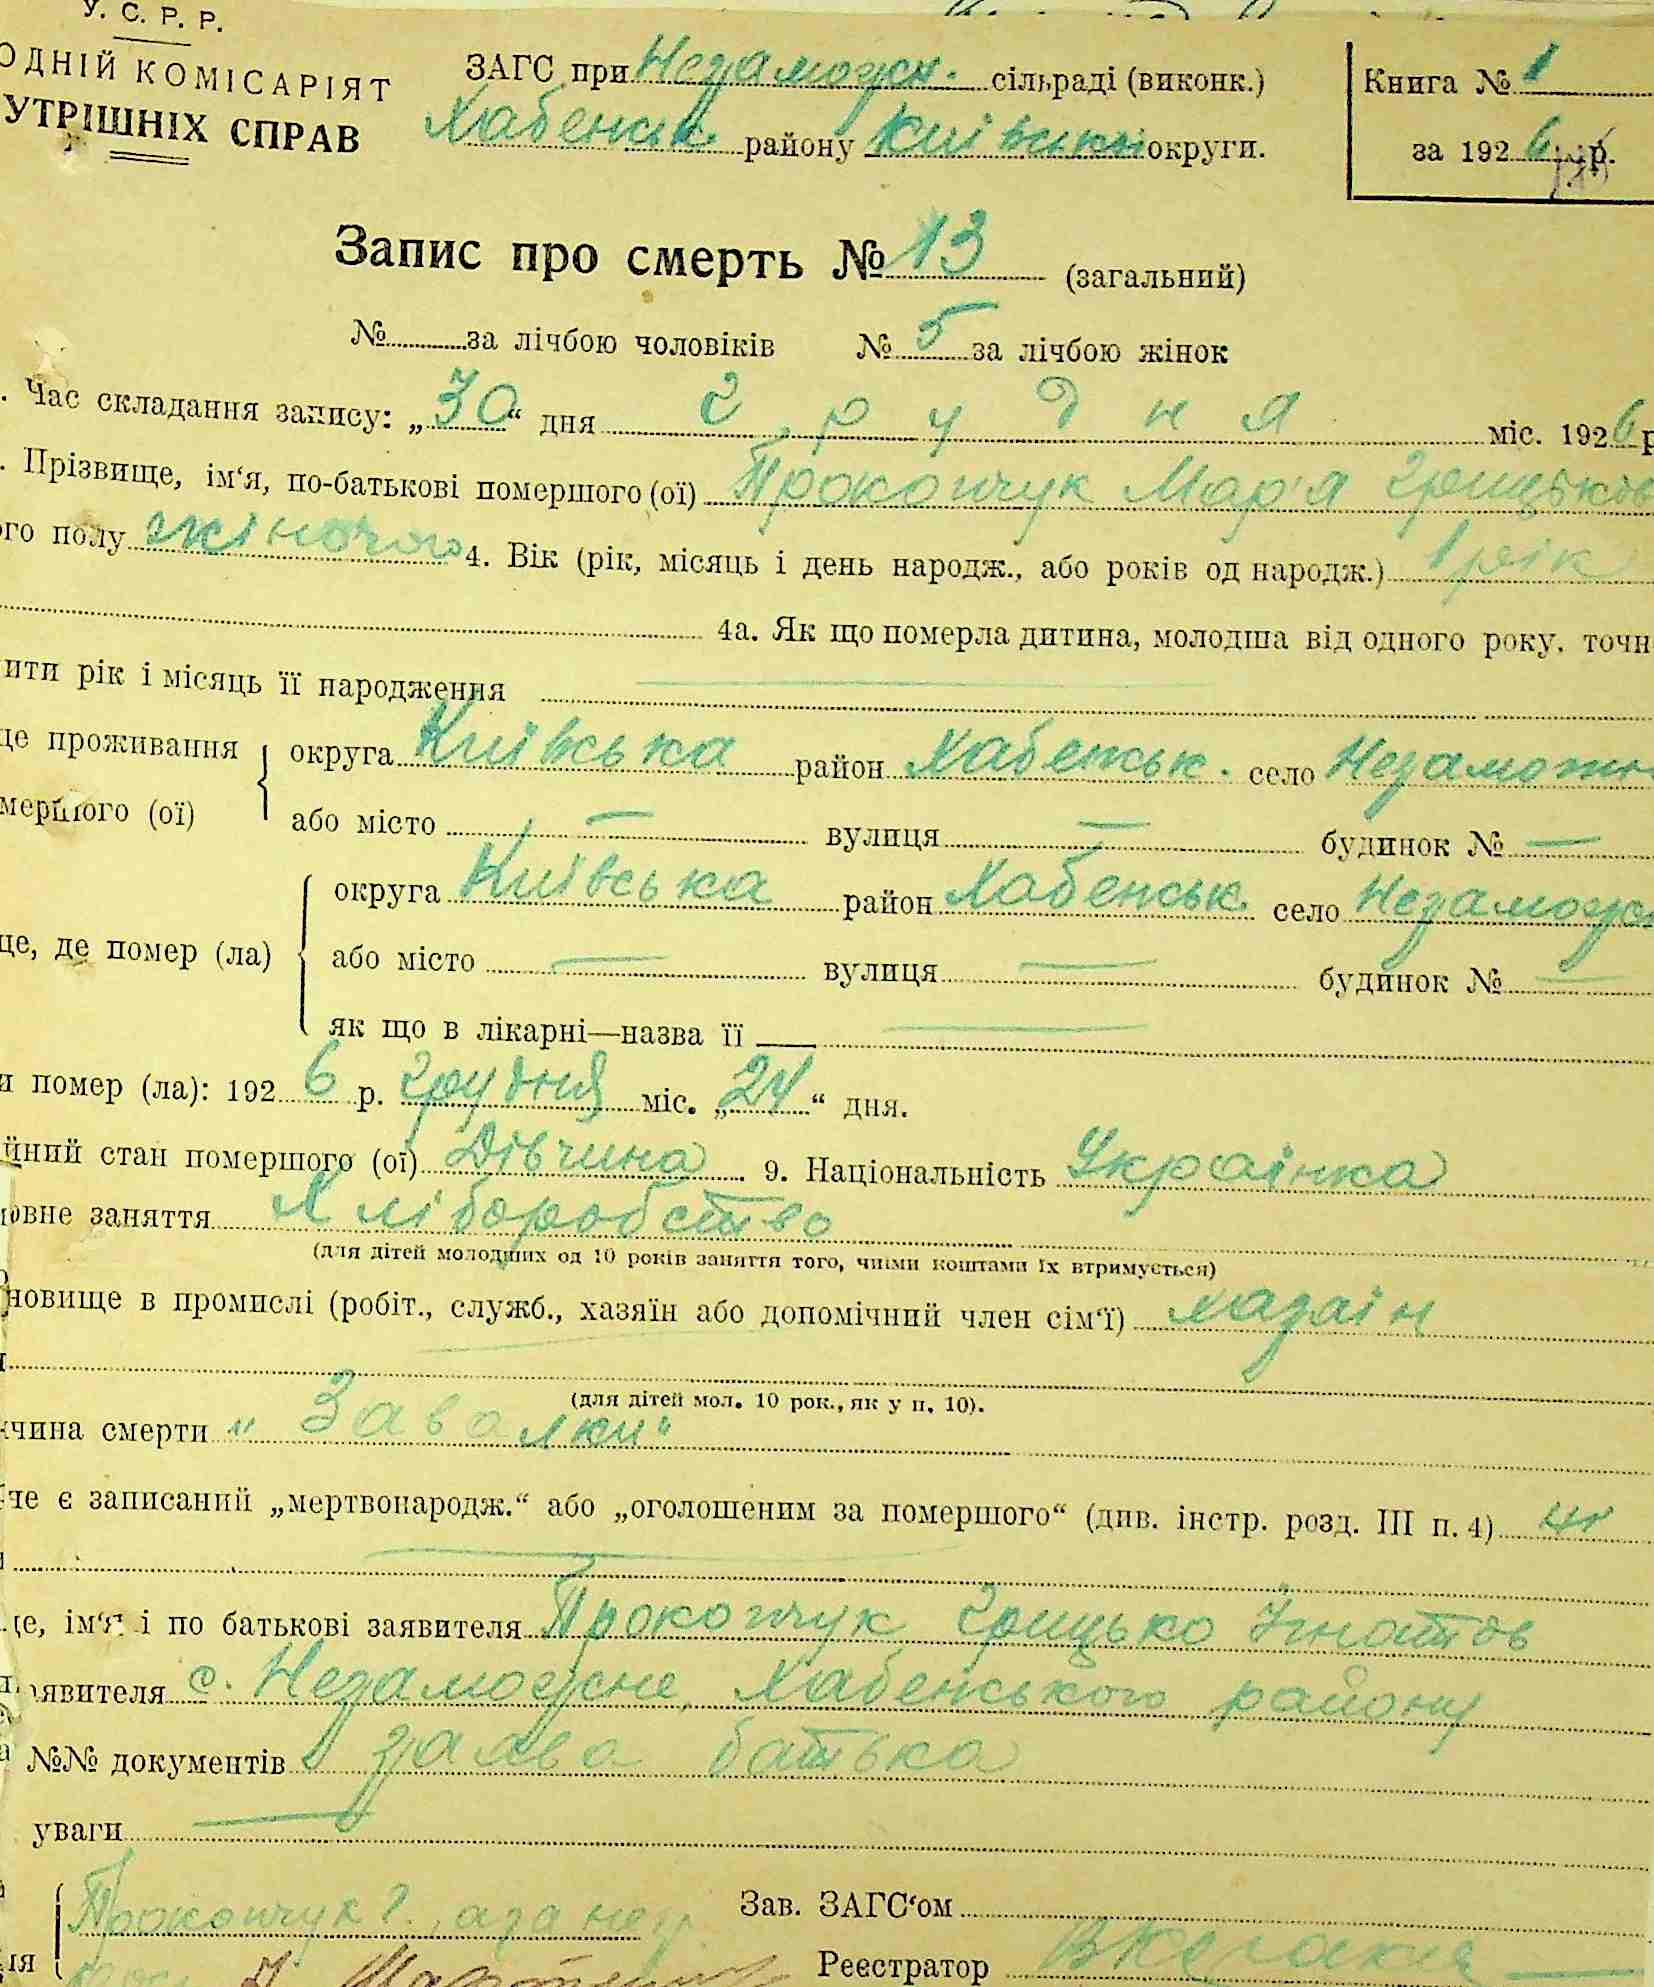 У. С. Р. Р.
ОДНІЙ КОМІСАРІЯТ
УТРІШНІХ СПРАВ
ЗАГС при Незаможн. сільраді (виконк.)
Хабенськ. району Київської округи.
Книга № 1
за 1926 р.
Запис про смерть № 13 (загальний)
№ за лічбою чоловіків № 5 за лічбою жінок
. Час складання запису: „30“ дня грудня міс. 1926 р
. Прізвище, ім‘я, по-батькові помершого (ої) Прокопчук Мар'я Грицьков
ого полу жіночого 4. Вік (рік, місяць і день народж., або років од народж.) 1 рік
4а. Як що померла дитина, молодша від одного року, точн
ити рік і місяць її народження
це проживання округа Київська район Хабенськ. село Незаможн
мершого (ої) або місто — вулиця — будинок № —
округа Київська район Хабенськ. село Незаможн
це, де помер (ла) або місто — вулиця — будинок № —
як що в лікарні—назва її —
и помер (ла): 1926 р. грудня міс. „24“ дня.
йний стан помершого (ої) Дівчина 9. Національність Українка
овне заняття Хліборобство
(для дітей молодших од 10 років заняття того, чиїми коштами їх втримується)
новище в промислі (робіт., служб., хазяїн або допомічний член сім‘ї) хазаін
(для дітей мол. 10 рок., як у п. 10).
чина смерти „Завалки“
че є записаний „мертвонародж.“ або „оголошеним за помершого“ (див. інстр. розд. III п. 4) ні
це, ім‘я і по батькові заявителя Прокопчук Грицько Ігнатов
аявителя с. Незаможне, Хабенського району
№№ документів заява батька
уваги —
Прокопчук Г., а за
Зав. ЗАГС‘ом
ія
Реєстратор